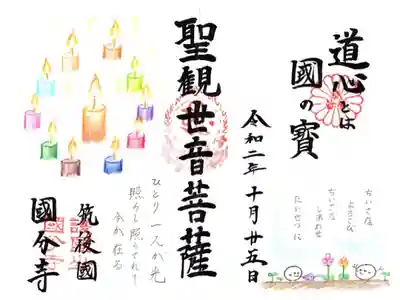 道心とは
國の寶
ちいさな
よろこび
ちいさな
しあわせ
たいせつに
令和二年十月廿五日
聖観世音菩薩
ひとり一人が光
照らし照らされて
今が在る
筑後國
國分寺